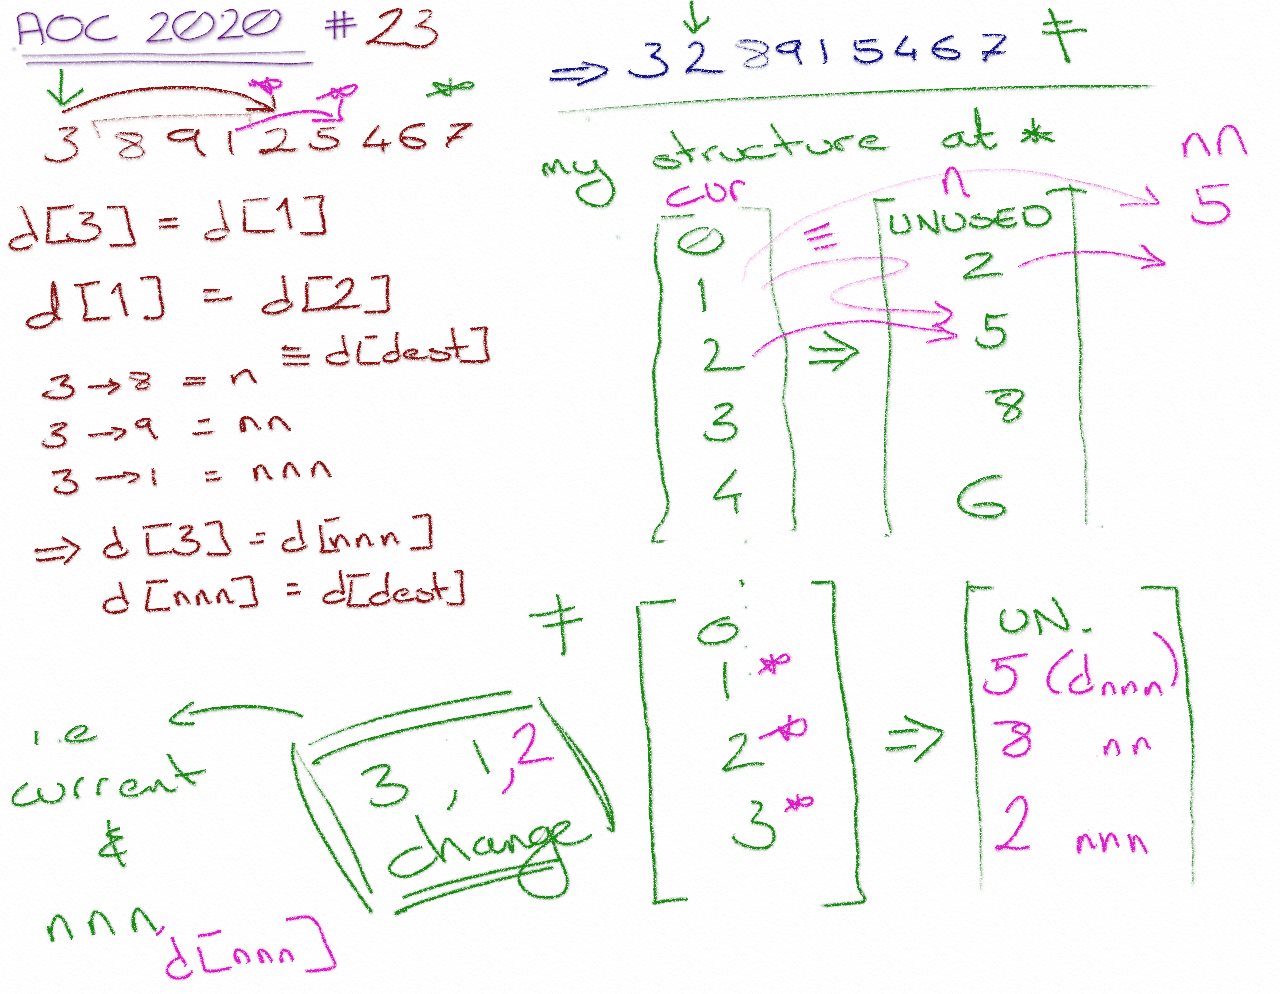 AOC 2020 # 23
3 8 9 1 2 5 4 6 7 *
d[3] = d[1]
d[1] = d[2]
≡ d[dest]
3 → 8 = n
3 → 9 = nn
3 → 1 = nnn
⇒ d[3] = d[nnn]
d[nnn] = d[dest]
⇒ 3 2 8 9 1 5 4 6 7 ‡
my structure at *
cur n nn
0 UNUSED 5
1 2
2 ⇒ 5
3 8
4 6
‡
0 UN.
1* 5 (dnnn)
2* ⇒ 8 nn
3* 2 nnn
3, 1, 2
change
i.e
current
&
nnn,
d[nnn]